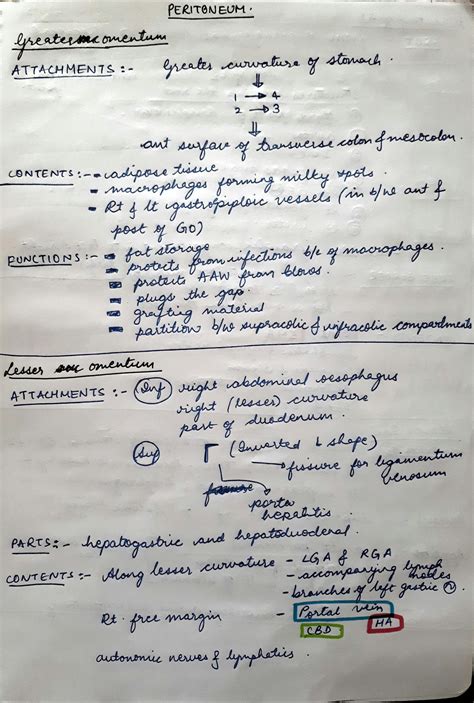 PERITONEUM.
Greater omentum
ATTACHMENTS :- Greater curvature of stomach.
⇓
1 → 4
2 → 3
⇓
ant surface of transverse colon & mesocolon.
CONTENTS :- - adipose tissue
- macrophages forming milky spots.
- Rt & lt gastropiploic vessels (in b/w ant &
post of GO)
FUNCTIONS :- - fat storage
- protects from infections b/c of macrophages.
- protects AAW from blows.
- plugs the gap.
- grafting material
- partition b/w supracolic & infracolic compartments
Lesser omentum
ATTACHMENTS :- (Inf) right abdominal oesophagus
right (lesser) curvature
part of duodenum.
(Sup) Γ (Inverted L shape)
→ fissure for ligamentum
venosum
porta
hepatitis.
PARTS :- hepatogastric and hepatoduodenal.
CONTENTS :- Along lesser curvature - LGA & RGA
- accompanying lymph
nodes
- branches of left gastric N
Rt. free margin - Portal vein
CBD HA
autonomic nerves & lymphatics.